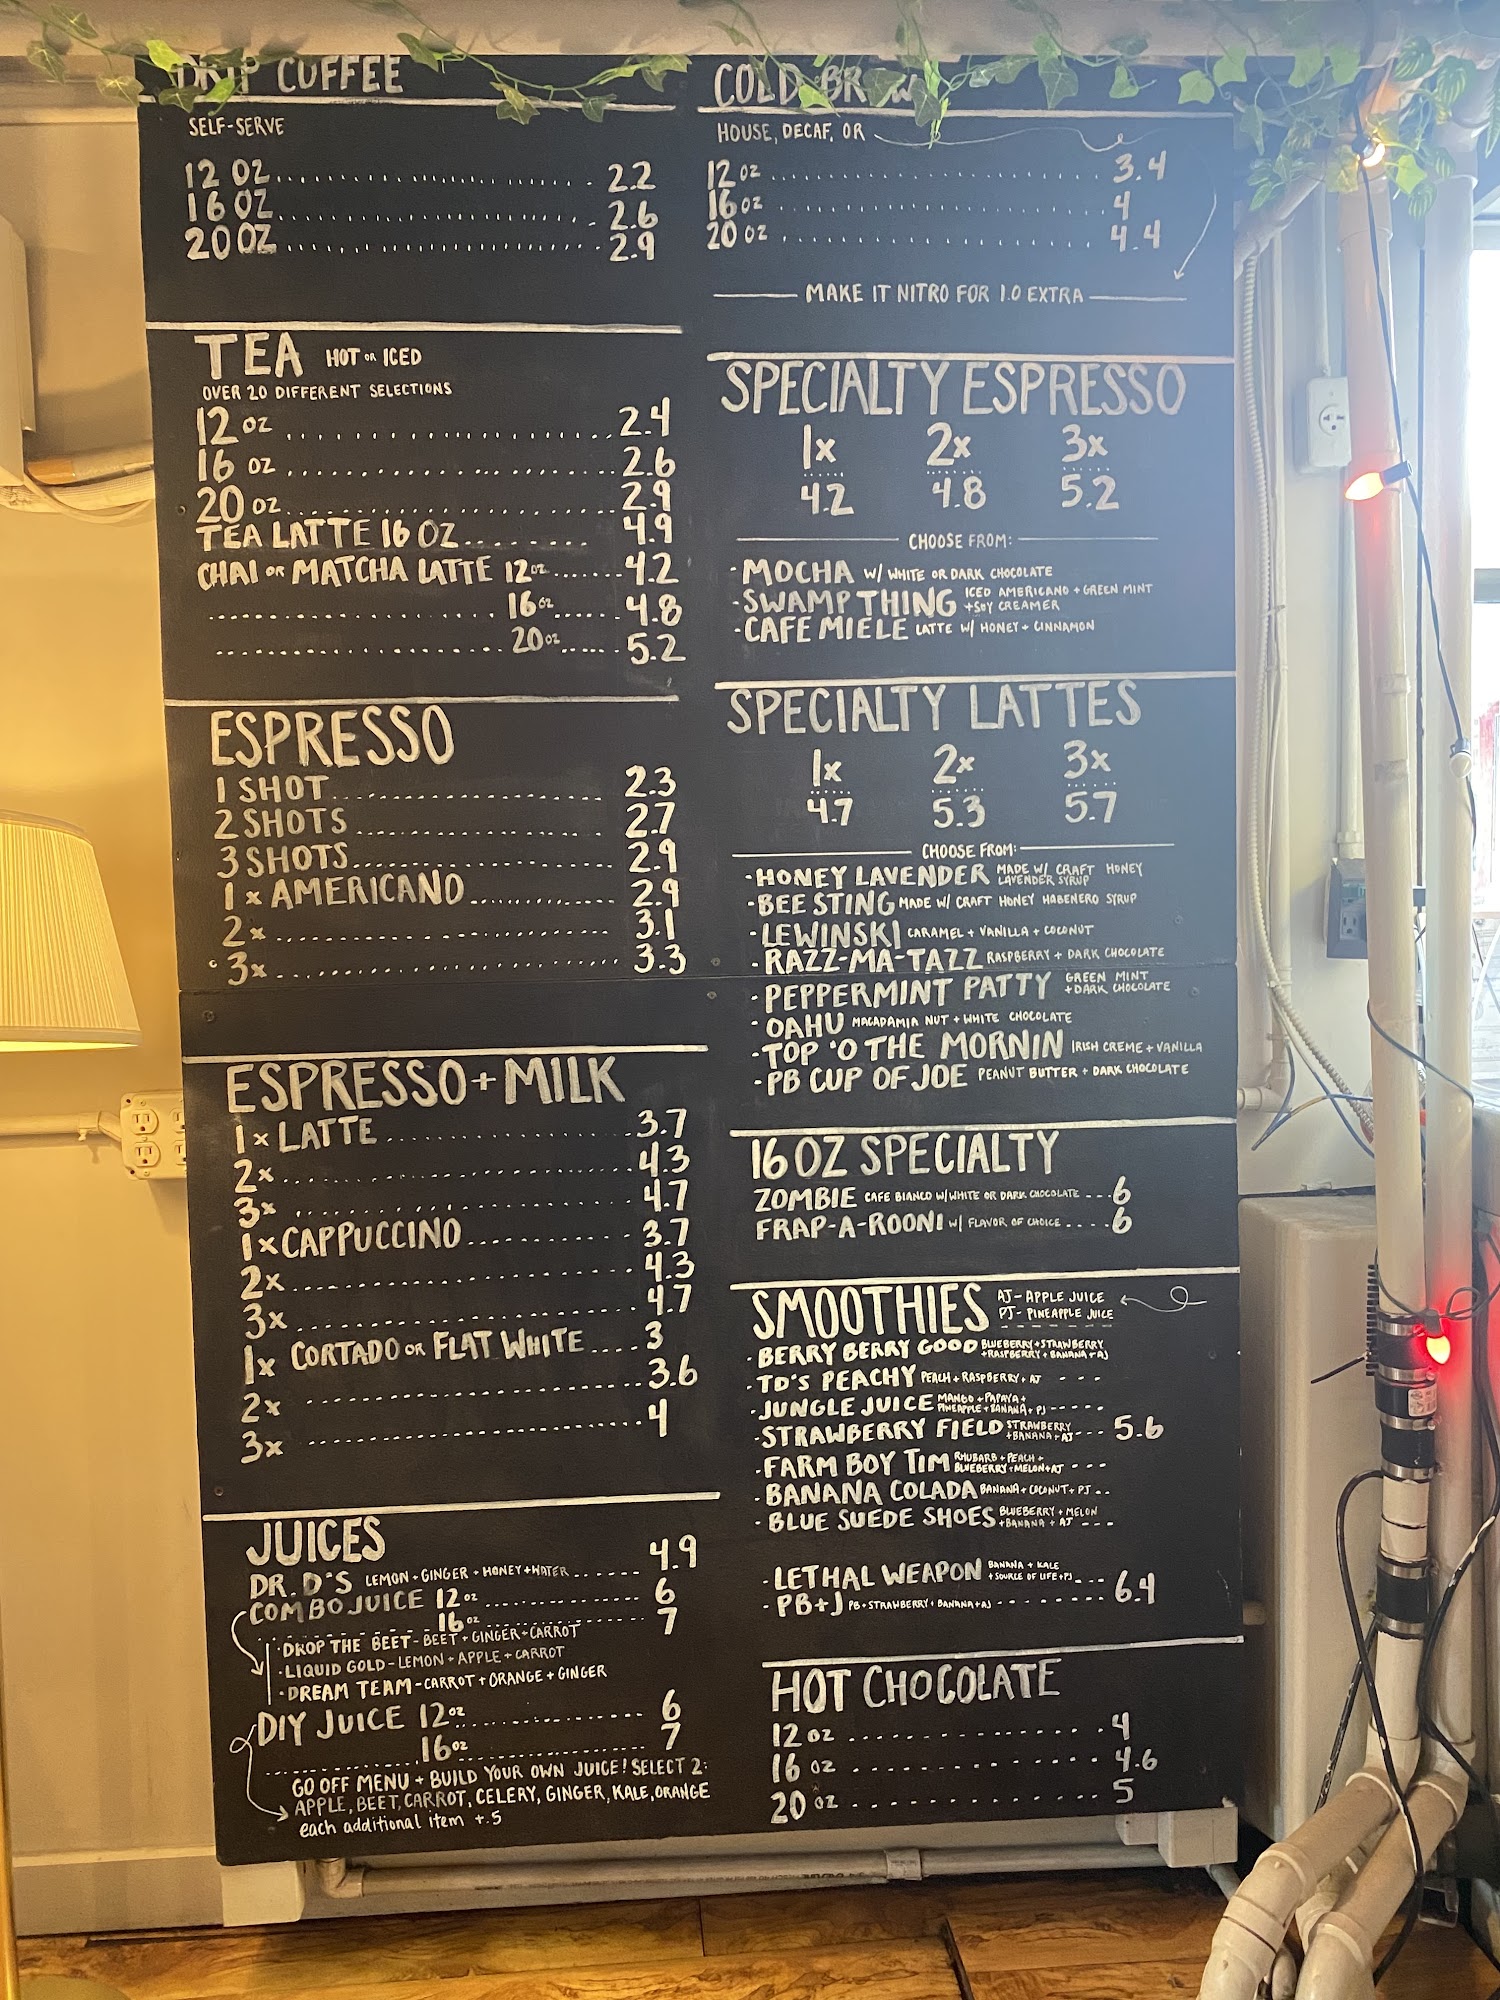 DRIP COFFEE
SELF-SERVE
12 OZ 2.2
16 OZ 2.6
20 OZ 2.9
TEA HOT OR ICED
OVER 20 DIFFERENT SELECTIONS
12 OZ 2.4
16 OZ 2.6
20 OZ 2.9
TEA LATTE 16 OZ 4.9
CHAI OR MATCHA LATTE 12 OZ 4.2
16 OZ 4.8
20 OZ 5.2
ESPRESSO
1 SHOT 2.3
2 SHOTS 2.7
3 SHOTS 2.9
1x AMERICANO 2.9
2x 3.1
3x 3.3
ESPRESSO + MILK
1x LATTE 3.7
2x 4.3
3x 4.7
1x CAPPUCCINO 3.7
2x 4.3
3x 4.7
1x CORTADO OR FLAT WHITE 3
2x 3.6
3x 4
JUICES
DR. D'S LEMON + GINGER + HONEY + WATER 4.9
COMBO JUICE 12 OZ 6
16 OZ 7
· DROP THE BEET - BEET + GINGER + CARROT
· LIQUID GOLD - LEMON + APPLE + CARROT
· DREAM TEAM - CARROT + ORANGE + GINGER
DIY JUICE 12 OZ 6
16 OZ 7
GO OFF MENU + BUILD YOUR OWN JUICE! SELECT 2:
APPLE, BEET, CARROT, CELERY, GINGER, KALE, ORANGE
each additional item +.5
COLD BREW
HOUSE, DECAF, OR
12 OZ 3.4
16 OZ 4
20 OZ 4.4
MAKE IT NITRO FOR 1.0 EXTRA
SPECIALTY ESPRESSO
1x 2x 3x
4.2 4.8 5.2
CHOOSE FROM:
- MOCHA W/ WHITE OR DARK CHOCOLATE
- SWAMP THING ICED AMERICANO + GREEN MINT
+ SOY CREAMER
- CAFE MIELE LATTE W/ HONEY + CINNAMON
SPECIALTY LATTES
1x 2x 3x
4.7 5.3 5.7
CHOOSE FROM:
- HONEY LAVENDER MADE W/ CRAFT HONEY
LAVENDER SYRUP
- BEE STING MADE W/ CRAFT HONEY HABENERO SYRUP
- LEWINSKI CARAMEL + VANILLA + COCONUT
- RAZZ-MA-TAZZ RASPBERRY + DARK CHOCOLATE
- PEPPERMINT PATTY GREEN MINT
+ DARK CHOCOLATE
- OAHU MACADAMIA NUT + WHITE CHOCOLATE
- TOP 'O THE MORNIN IRISH CREME + VANILLA
- PB CUP OF JOE PEANUT BUTTER + DARK CHOCOLATE
16 OZ SPECIALTY
ZOMBIE CAFE BIANCO W/ WHITE OR DARK CHOCOLATE 6
FRAP-A-ROONI W/ FLAVOR OF CHOICE 6
SMOOTHIES AJ - APPLE JUICE
PJ - PINEAPPLE JUICE
- BERRY BERRY GOOD BLUEBERRY + STRAWBERRY
+ RASPBERRY + BANANA + AJ
- TD'S PEACHY PEACH + RASPBERRY + AJ
- JUNGLE JUICE MANGO + PAPAYA +
PINEAPPLE + BANANA + PJ
- STRAWBERRY FIELD STRAWBERRY
+ BANANA + AJ 5.6
- FARM BOY TIM RHUBARB + PEACH +
BLUEBERRY + MELON + AJ
- BANANA COLADA BANANA + COCONUT + PJ
- BLUE SUEDE SHOES BLUEBERRY + MELON
+ BANANA + AJ
- LETHAL WEAPON BANANA + KALE
+ SOURCE OF LIFE + PJ
- PB+J PB + STRAWBERRY + BANANA + AJ 6.4
HOT CHOCOLATE
12 OZ 4
16 OZ 4.6
20 OZ 5